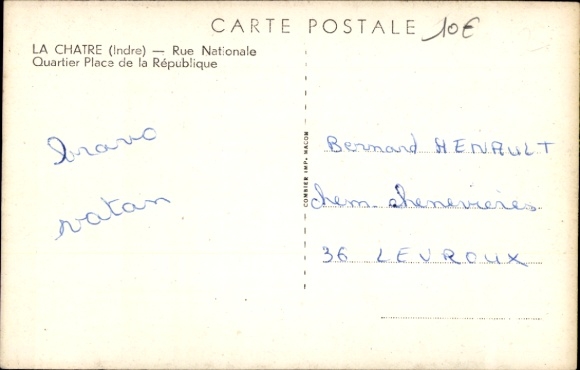 CARTE POSTALE 10€
LA CHATRE (Indre) — Rue Nationale
Quartier Place de la République
bravo
vatan
COMBIER IMP. MACON
Bernard HENAULT
chem chenevieres
36 LEVROUX